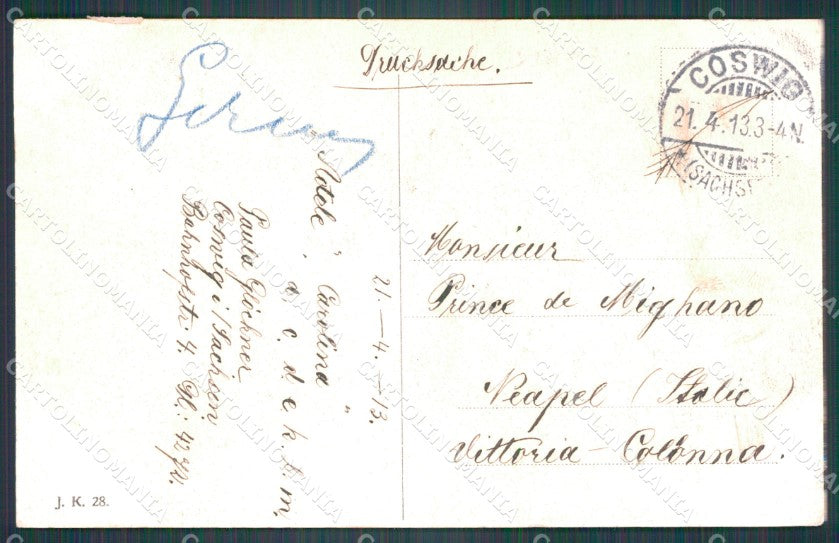 Drucksache.
COSWIG
21.4.13.3-4N.
(SACHSE
21.–4.–13.
"Carolina"
b. c. d. e. k. l. m.
Paula
Coswig i/Sachsen
Bahnhofstr. 4.
Monsieur
Prince de Mighano
Neapel (Italie)
Vittoria-Colonna.
J. K. 28.
CARTOLINOMANIA